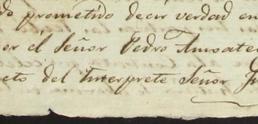 do prometido decir verdad en
or el Señor Pedro
eto del Interprete Señor